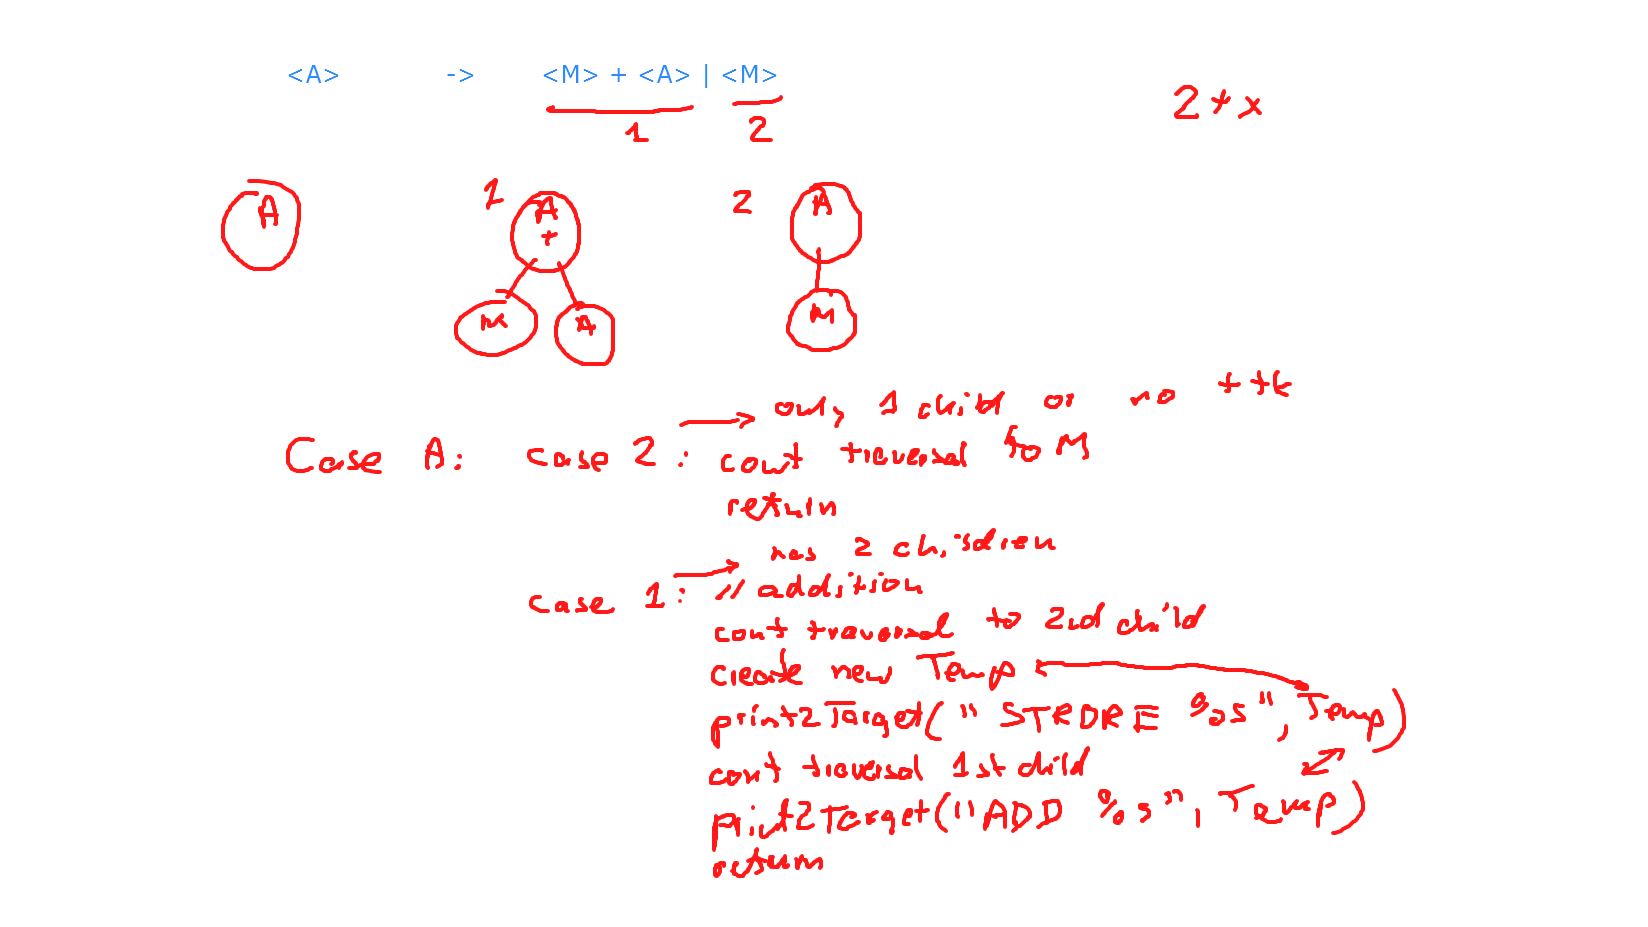 <A> -> <M> + <A> | <M>
2 + x
1 2
A
1 A + M A
2 A M
only 1 child or no + tk
Case A: case 2: cont traversal to M
return
has 2 children
case 1: // addition
cont traversal to 2nd child
create new Temp
print2Target(" STRORE %s", Temp)
cont traversal 1st child
print2Target("ADD %s", Temp)
return